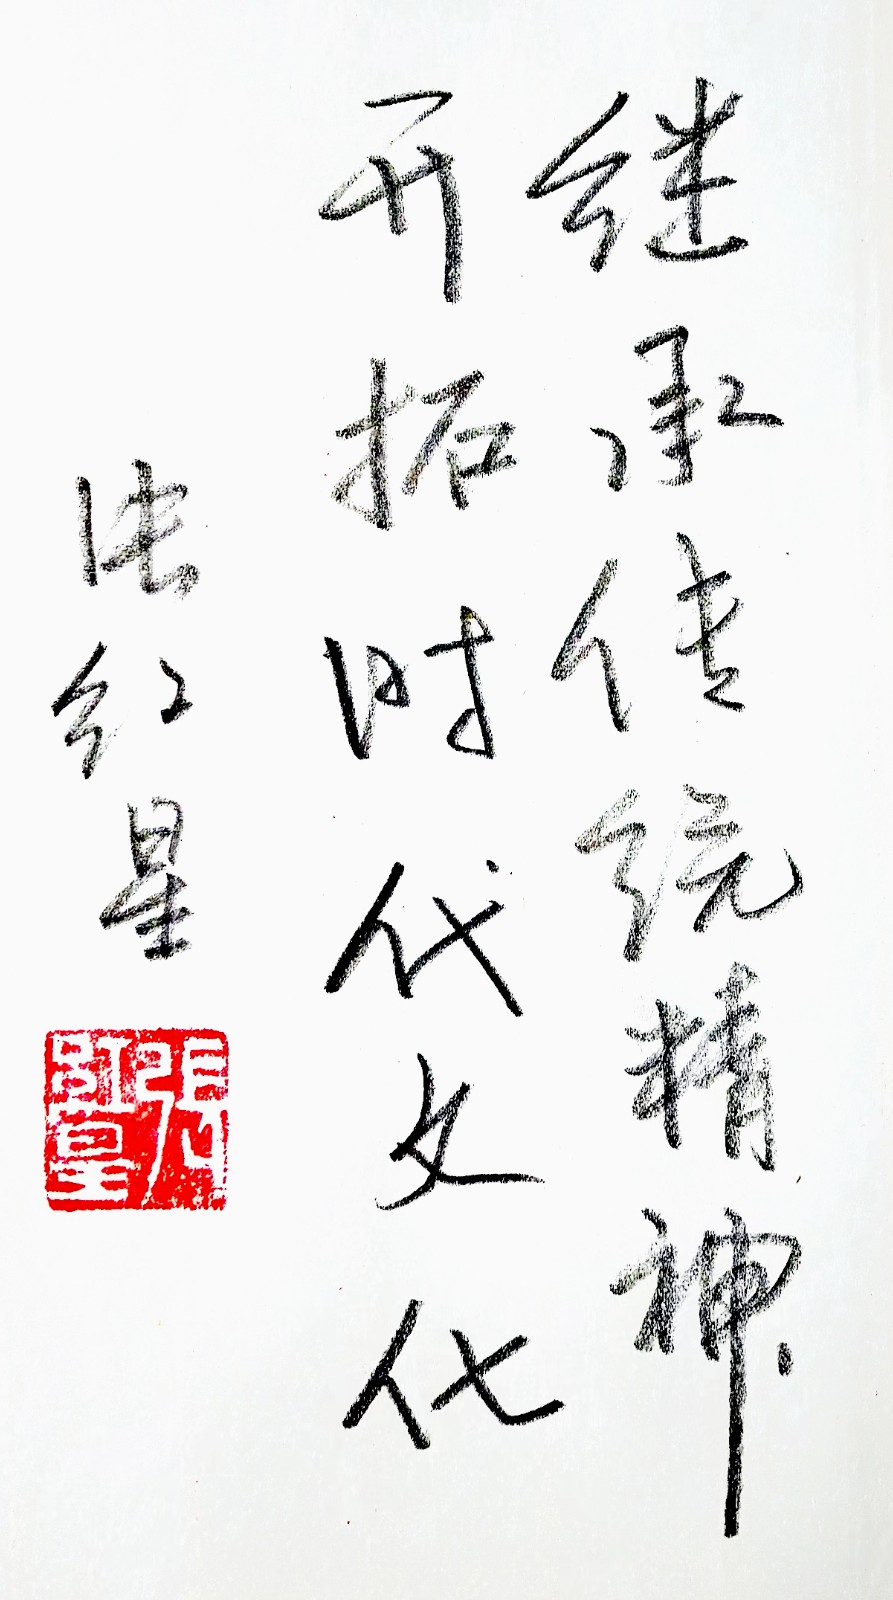 继承传统精神、
开拓时代文化
张红星
張红星